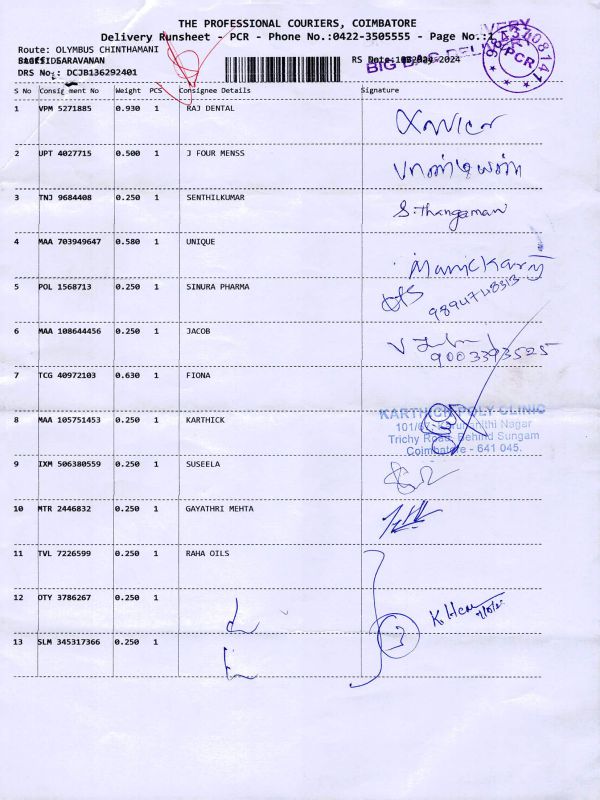 THE PROFESSIONAL COURIERS, COIMBATORE
Delivery Runsheet - PCR - Phone No.:0422-3505555 - Page No.:1
Route: OLYMPUS CHINTHAMANI
SARAVANAN
RS Date: 2024
BIG BAG DELIVERY
DRS No.: DCJB136292401
PCR
S No Consignment No Weight PCS Consignee Details Signature
1 VPM 5271885 0.930 1 RAJ DENTAL
2 UPT 4027715 0.500 1 J FOUR MENSS
3 TNJ 9684408 0.250 1 SENTHILKUMAR S. Thangaman
4 MAA 703949647 0.580 1 UNIQUE
5 POL 1568713 0.250 1 SINURA PHARMA 9894748313
6 MAA 108644456 0.250 1 JACOB
9003393525
7 TCG 40972103 0.630 1 FIONA
8 MAA 105751453 0.250 1 KARTHICK KARTHICK POLY CLINIC
101/67, Karunanithi Nagar
Trichy Road, Behind Sungam
Coimbatore - 641 045.
9 IXM 506380559 0.250 1 SUSEELA
10 MTR 2446832 0.250 1 GAYATHRI MEHTA
11 TVL 7226599 0.250 1 RAHA OILS
12 OTY 3786267 0.250 1
13 SLM 345317366 0.250 1